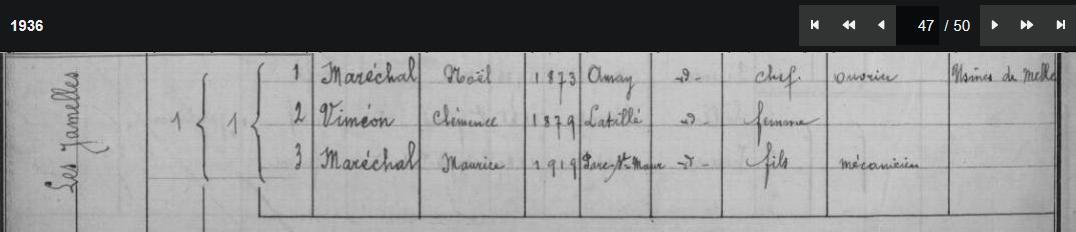 1936
47 / 50
Les Jamelles
1 1 1 Maréchal Noël 1873 Amay -d- chef. ouvrier Usines de Melle
2 Viméon Clémence 1879 Latillé -d- femme
3 Maréchal Maurice 1919 Parc-St Maur -d- fils mécanicien